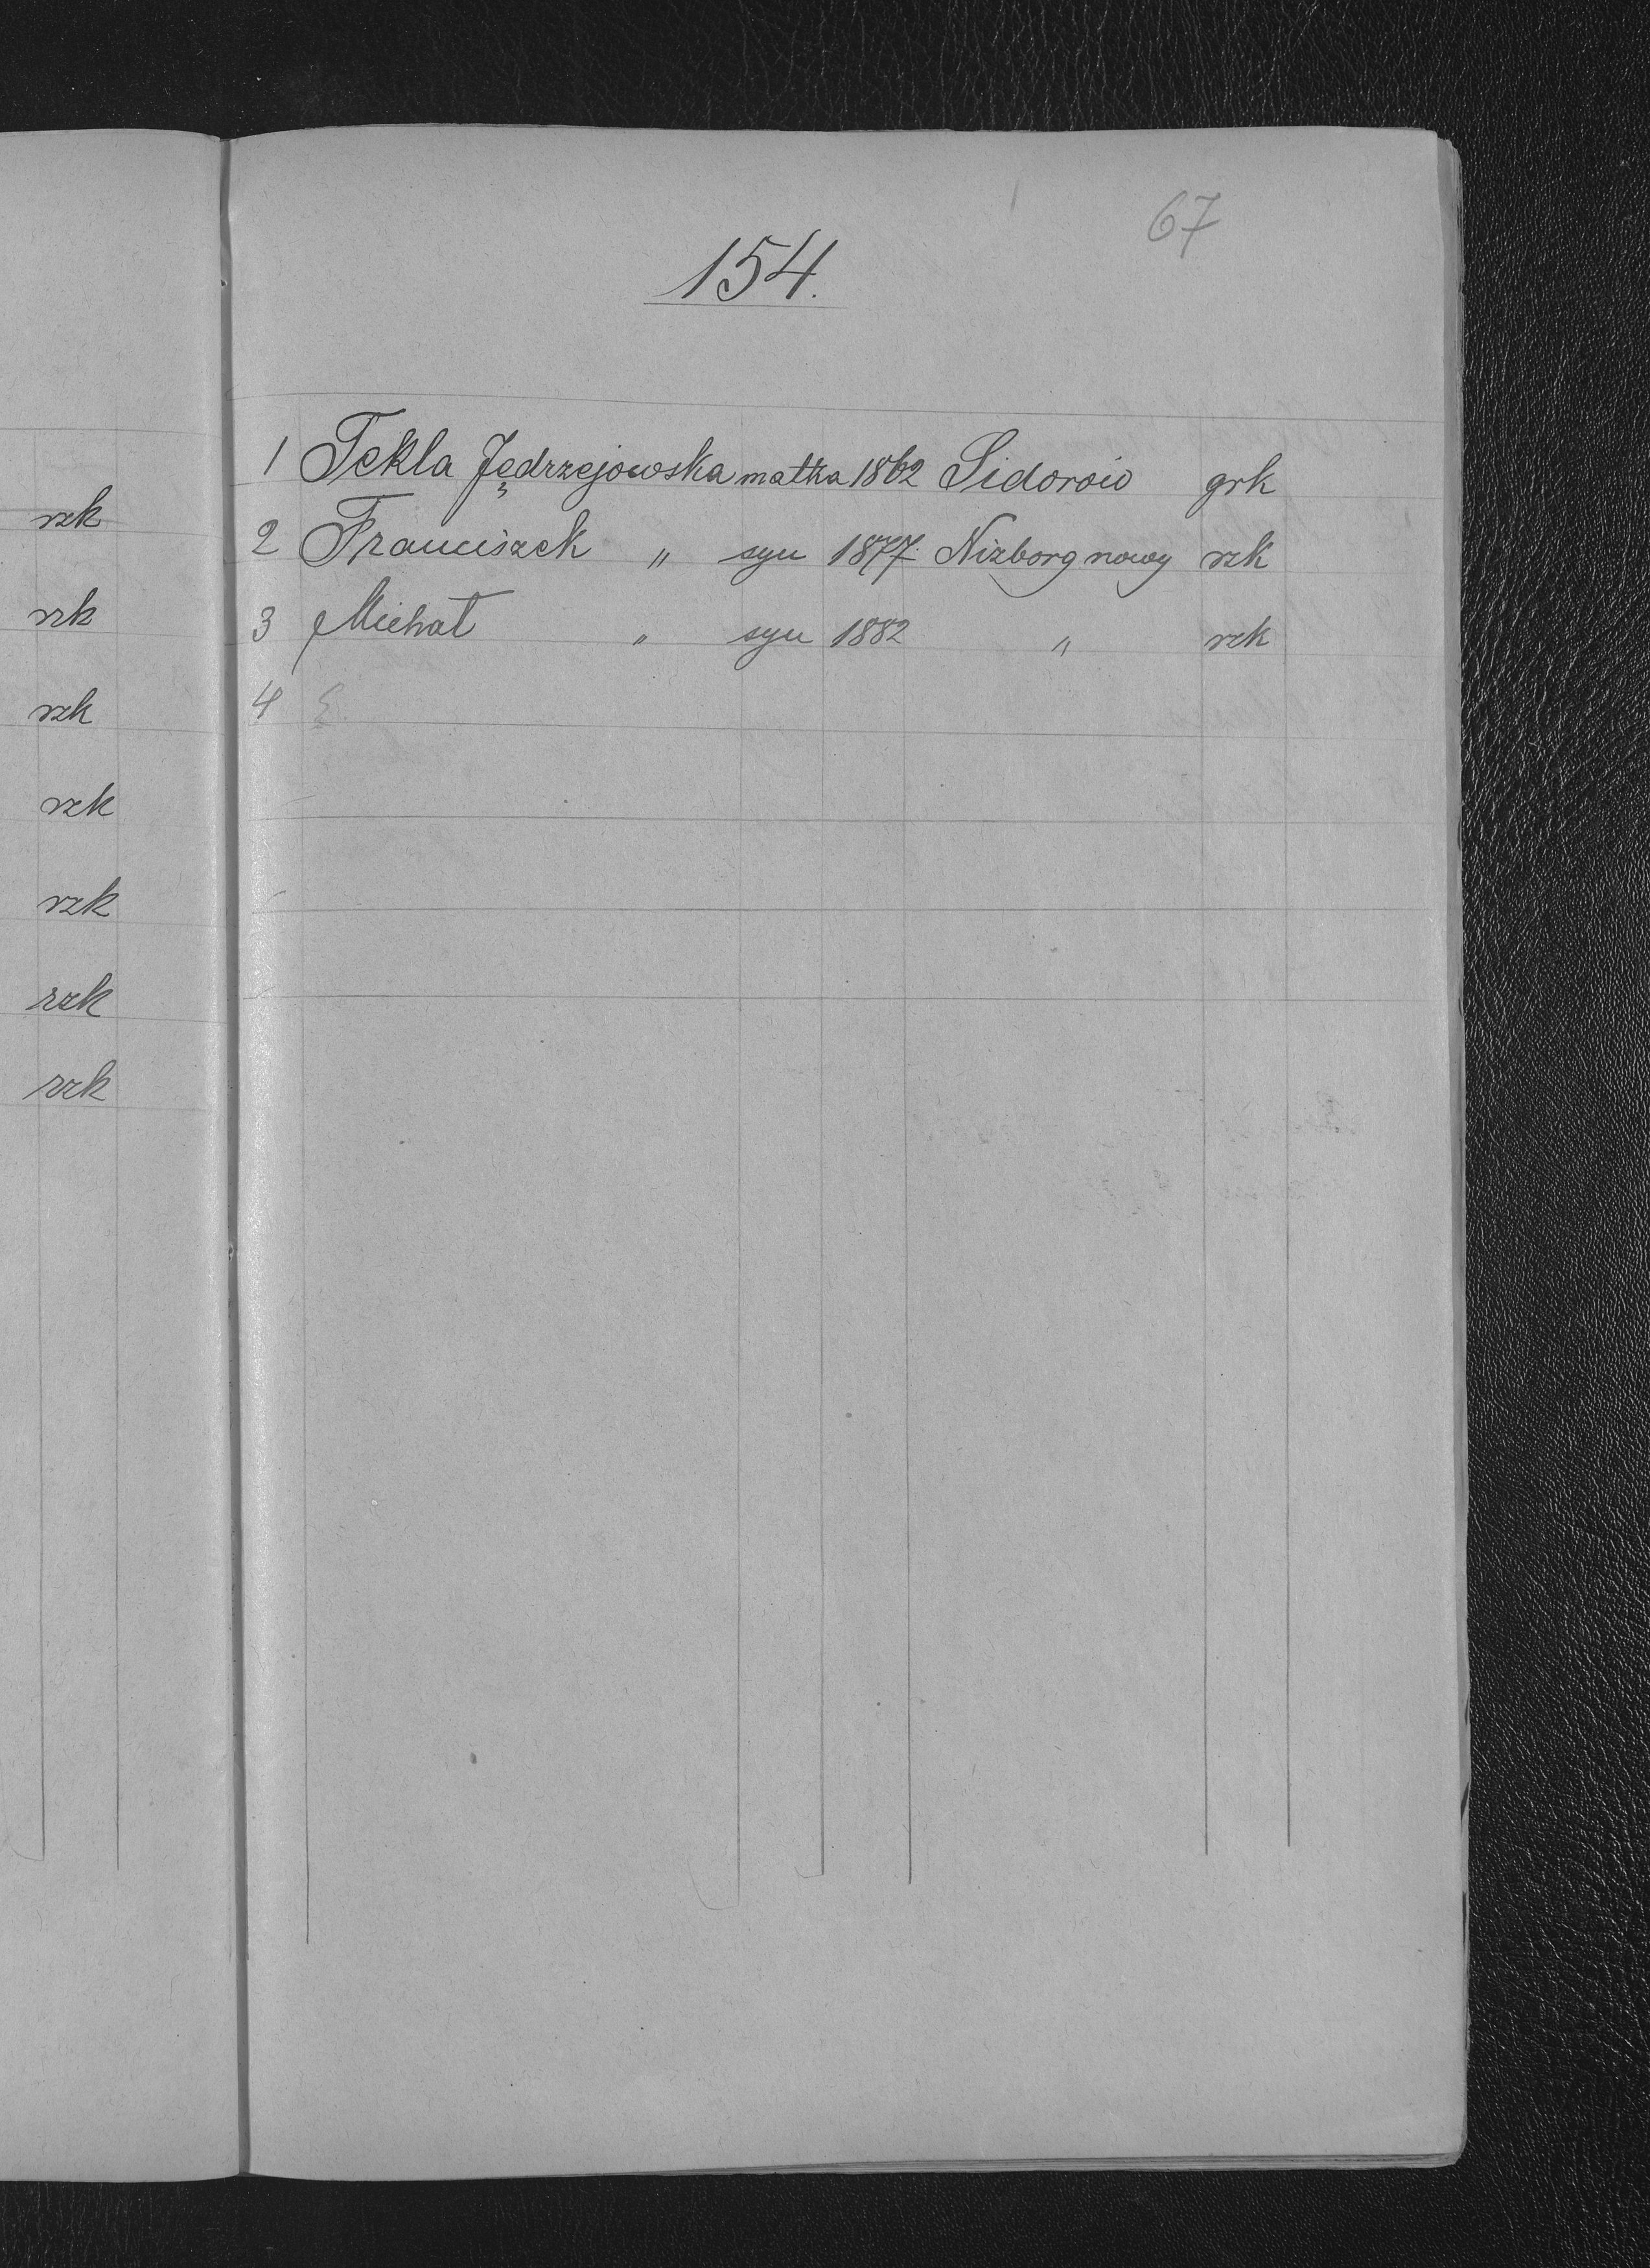 67
154.
1 Tekla Jędrzejowska matka 1862 Sidorów grk
2 Franciszek " syn 1877. Niżborg nowy rzk
3 Michał " syn 1882 " rzk
4
rzk
rzk
rzk
rzk
rzk
rzk
rzk